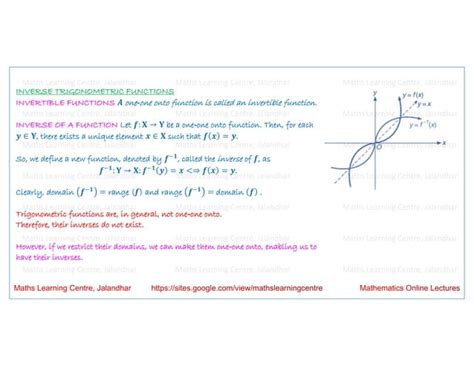 Maths Learning Centre, Jalandhar Maths Learning Centre, Jalandhar Maths Learning Centre, Jalandhar
INVERSE TRIGONOMETRIC FUNCTIONS
INVERTIBLE FUNCTIONS A one-one onto function is called an invertible function.
INVERSE OF A FUNCTION Let f: X → Y be a one-one onto function. Then, for each
y ∈ Y, there exists a unique element x ∈ X such that f(x) = y.
So, we define a new function, denoted by f⁻¹, called the inverse of f, as
f⁻¹: Y → X: f⁻¹(y) = x <=> f(x) = y.
Clearly, domain (f⁻¹) = range (f) and range (f⁻¹) = domain (f) .
Trigonometric functions are, in general, not one-one onto.
Therefore, their inverses do not exist.
However, if we restrict their domains, we can make them one-one onto, enabling us to
have their inverses.
y
y = f(x)
y = x
y = f⁻¹(x)
x
O
Maths Learning Centre, Jalandhar https://sites.google.com/view/mathslearningcentre Mathematics Online Lectures